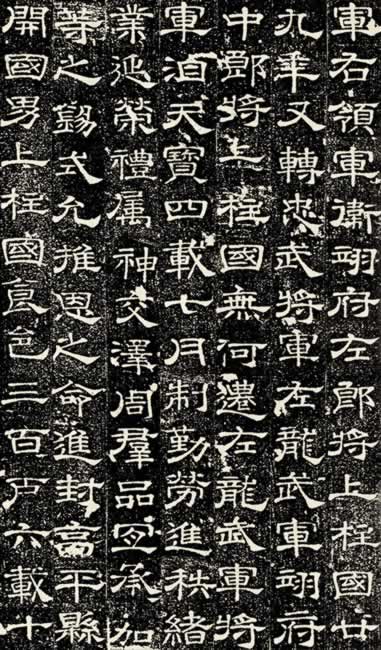 軍右領軍衛翊府左郎將上柱國廿
九年又轉忠武將軍左龍武軍翊府
中郎將上柱國無何遷左龍武軍將
軍洎天寶四載七月制勤勞進秩緒
業延榮禮属神交澤周羣品宜承加
等之錫式允推恩之命進封高平縣
開國男上柱國食邑三百戶六載十